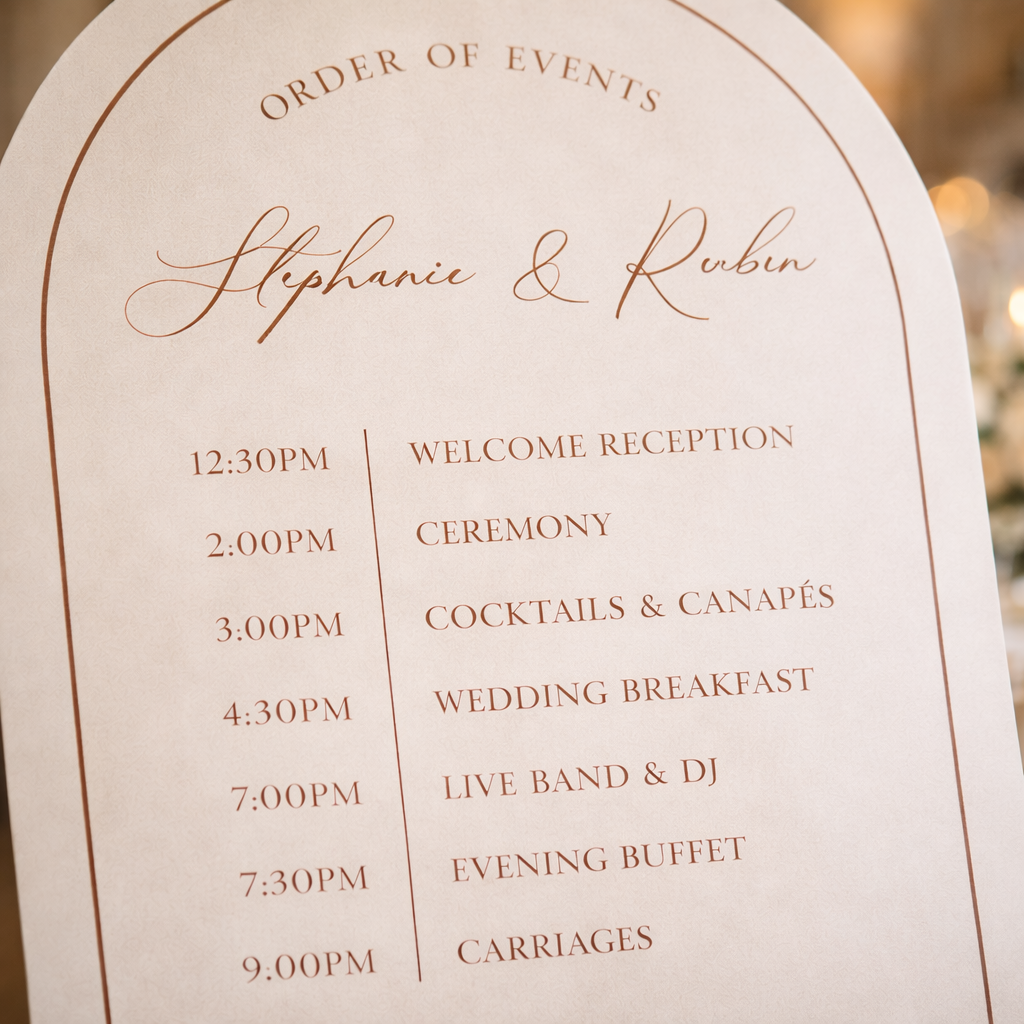 ORDER OF EVENTS
Stephanie & Ruben
12:30PM WELCOME RECEPTION
2:00PM CEREMONY
3:00PM COCKTAILS & CANAPÉS
4:30PM WEDDING BREAKFAST
7:00PM LIVE BAND & DJ
7:30PM EVENING BUFFET
9:00PM CARRIAGES